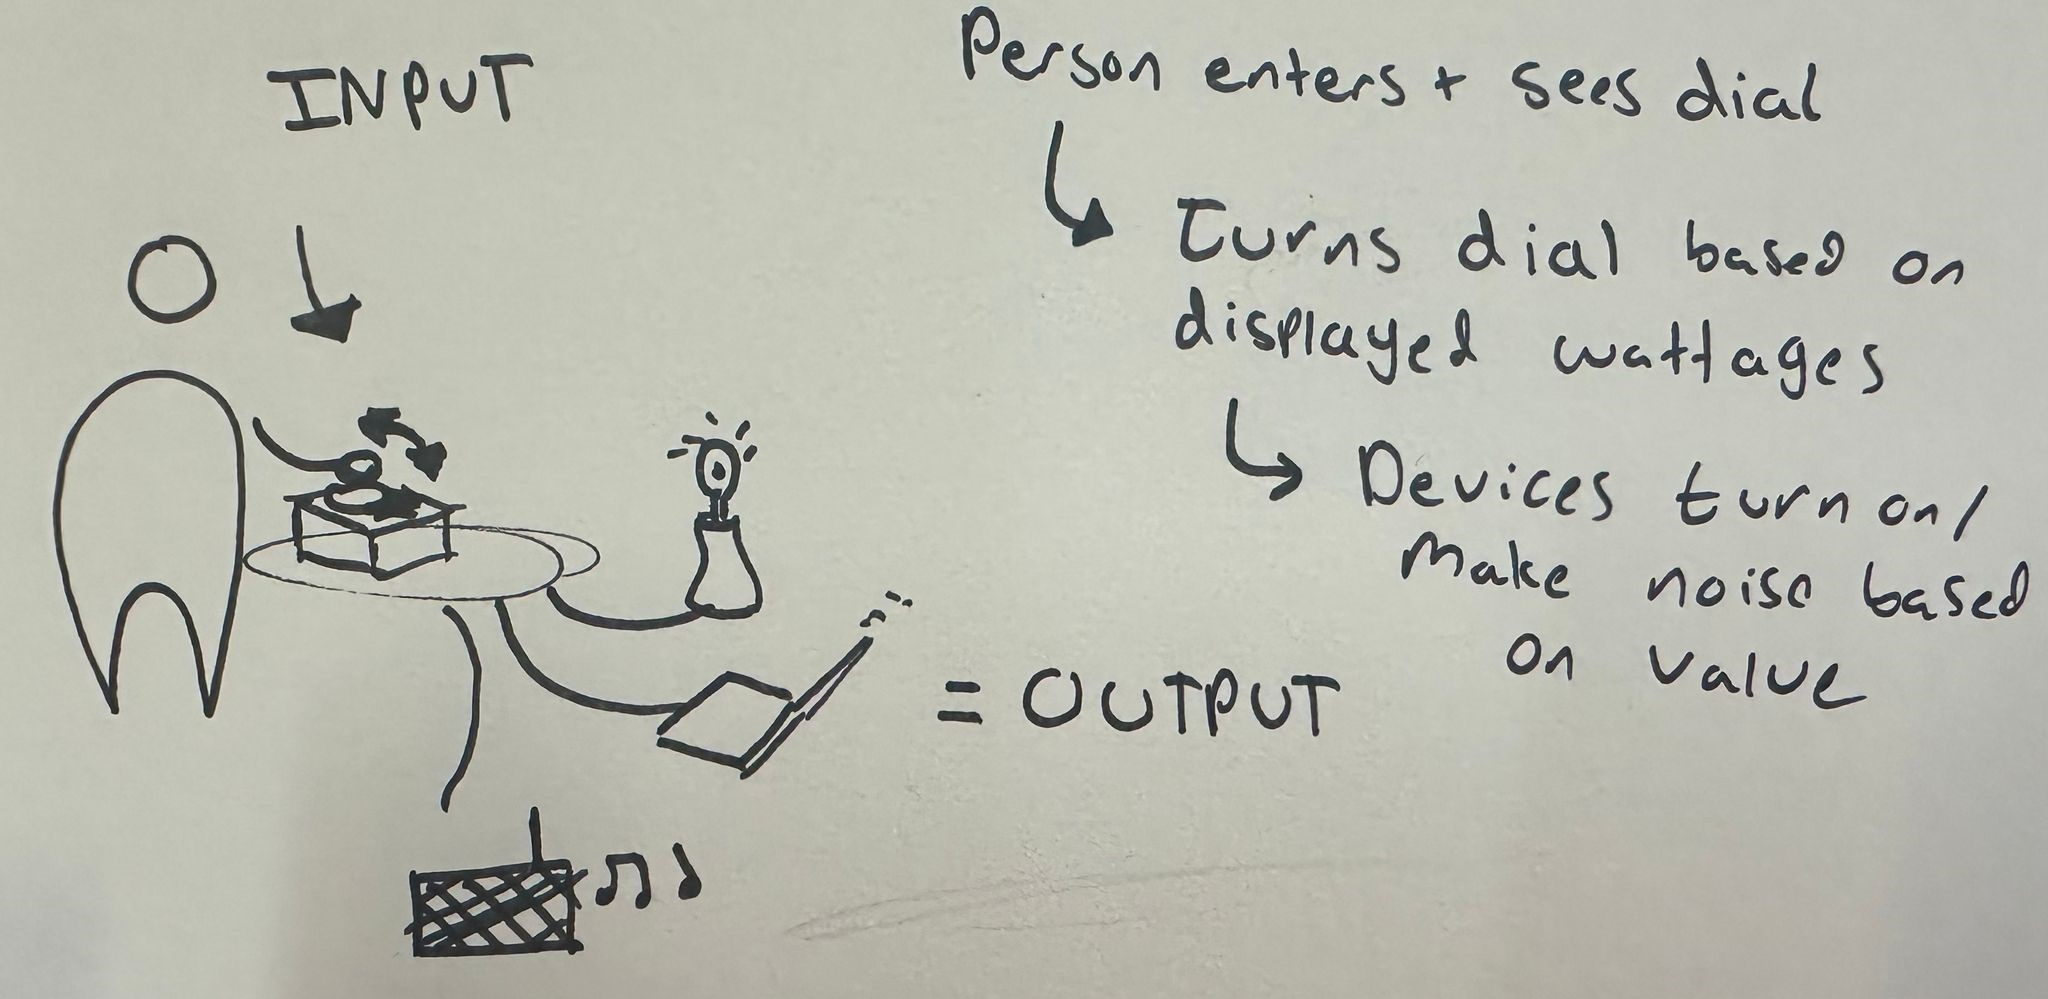 INPUT
Person enters + sees dial
Turns dial based on
displayed wattages
Devices turn on/
Make noise based
on value
= OUTPUT